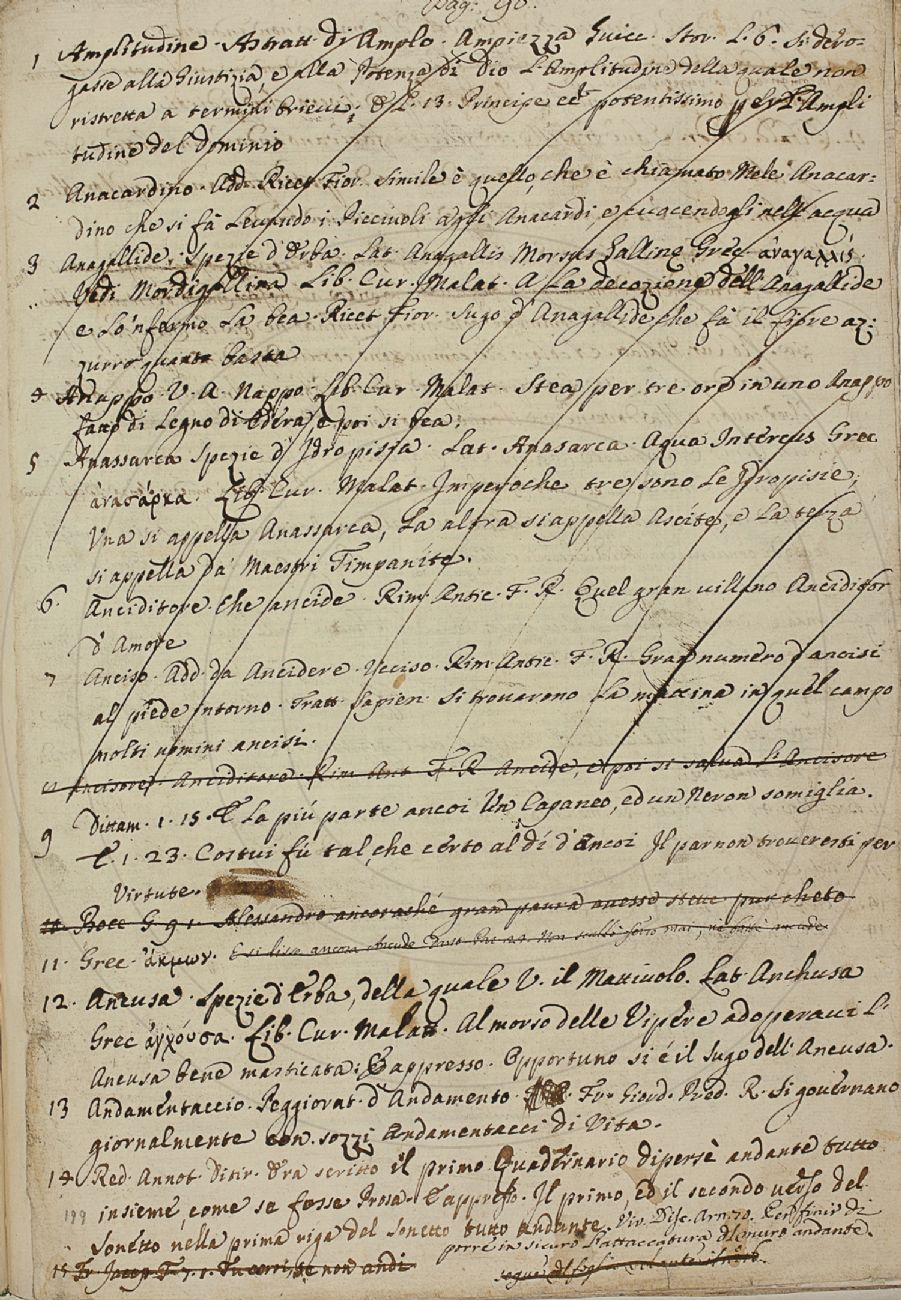 Pag. 90.
1 Amplitudine. Astratt. di Amplo. Ampiezza Guicc. Stor. L. 6. Si dero-
gasse alla Giustizia, e alla Potenza di Dio L'Amplitudine della quale non
ristretta a termini brievi; E L. 13. Principe potentissimo per L'Ampli
tudine del Dominio
2 Anacardino. Add. Ricet. Fior. Simile è quello che è chiamato Mele Anacar-
dino che si fà Levando i Picciuoli agli Anacardi, e cuocendogli nell'acqua
3 Anagallide. Spezie d'Erba. Lat. Anagallis Morsus Gallinę Grec. ἀναγαλλίς.
Vedi Mordigallina Lib. Cur. Malat. A La decozione dell'Anagallide
e Lo'nfermo La bea. Ricet. Fior. Sugo d'Anagallide che fà il fiore az:
zurro quanto basta
4 Anappo. V. A. Nappo. Lib. Cur. Malat. Stea per tre ore in uno Anappo
fatto di Legno di Edera, e poi si bea.
5 Anassarca Spezie d'Idropisia. Lat. Anasarca. Aqua Intercus Grec
ἀνασάρκα. Lib. Cur. Malat. Imperoche tre sono Le Idropisie,
Una si appella Anassarca, La altra si appella Ascite, e La terza
si appella da Maestri Timpanite.
6. Anciditore. Che ancide. Rim. Antic. F. R. Quel gran villano Anciditor
d'Amore
7 Anciso. Add. da Ancidere. Ucciso. Rim. Antic. F. R. Gran numero d'ancisi
al piede intorno. Tratt. Sapien. Si trovarono La mattina in quel campo
molti uomini ancisi.
Ancisore. Anciditore. Rim. Ant. F. R. Ancide, e poi si salva L'Ancisore
9 Dittam. 1. 15. E La più parte ancoi Un Capaneo, ed un Neron somiglia.
E. 1. 23. Costui fù tal, che certo al dì d'ancoi Il par non troveresti per
Virtute.
Bocc. G. 9. 1. Alessandro ancorachè gran paura avesse stette pur cheto
11. Grec. ἄκμων.
12. Ancusa. Spezie d'Erba, della quale V. il Mattiuolo. Lat. Anchusa
Grec ἀγχόυσα. Lib. Cur. Malatt. Al morso delle Vipere adoperavi L'
Ancusa bene masticata; E appresso. Opportuno si è il Sugo dell'Ancusa.
13 Andamentaccio. Peggiorat. d'Andamento. Fr. Giord. Pred. R. Si governano
giornalmente con sozzi Andamentacci di Vita.
14 Red. Annot. Ditir. Era scritto il primo Quadernario disperse andante tutto
199 insieme, come se fosse Prosa. E appresso. Il primo, ed il secondo verso del
Sonetto nella prima riga del Sonetto tutto andante. Viv. Disc. Arno. Per finir di
porre in sicuro L'attaccatura al muro andante.
15 Fr. Jacop. T. se non andi